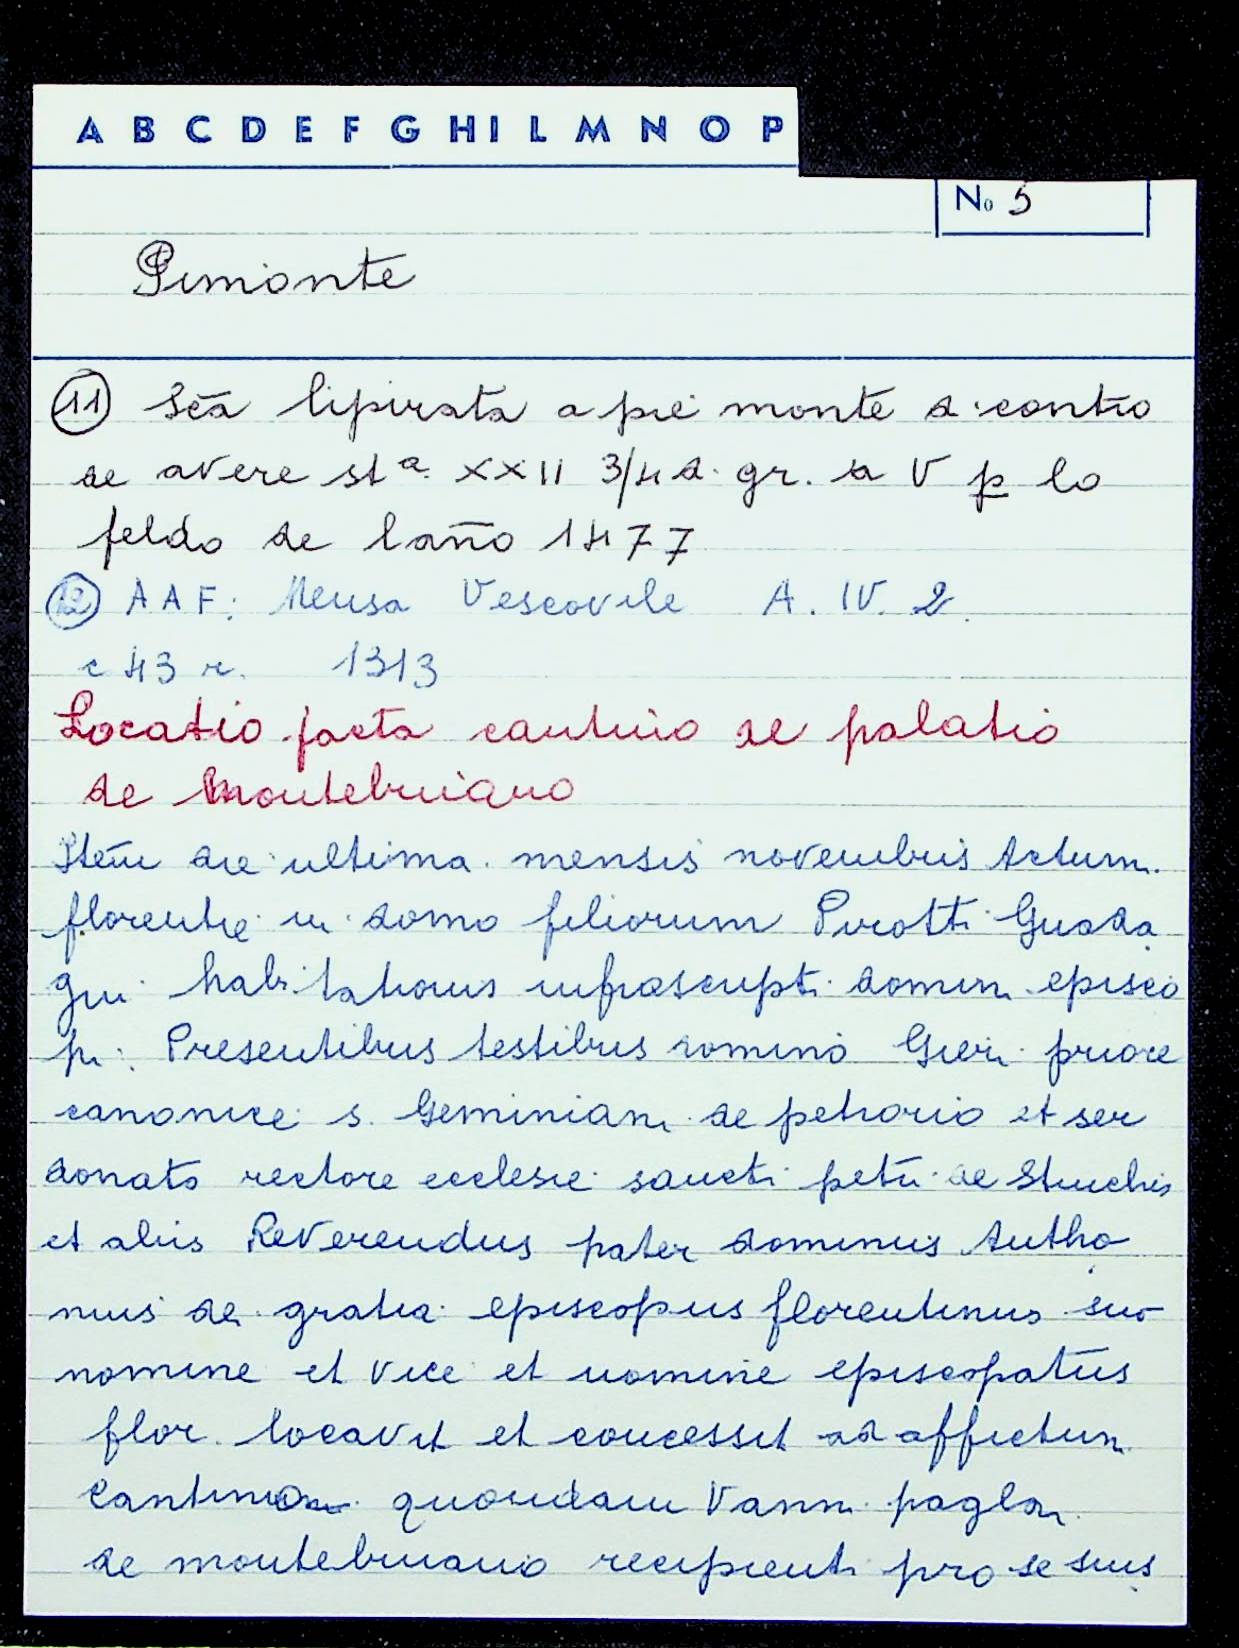 A B C D E F G H I L M N O P
No 5
Pimonte
11 Sēa lipirata a piè monte d. contro
de avere st.a XXII 3/4 d. gr. a V p lo
feldo de lano 1477
12 AAF: Mensa Vescovile A. IV. 2.
c 43 r. 1313
Locatio facta cantino de palatio
de Montebuiano
Item die ultima mensis novembris Actum
florentie in domo filiorum Pirotti Guada
gni habitationis infrascripti domini episco
pi. Presentibus testibus domino Gieri priore
canonice s. Geminiani de petrorio et ser
donato rectore ecclesie sancti petri de Stuchis
et aliis Reverendus pater dominus Antho
nius dei gratia episcopus florentinus suo
nomine et vice et nomine episcopatus
flor. locavit et concessit ad affictum
Cantino quondam Vanni paglai
de montebuiano recipienti pro se suis